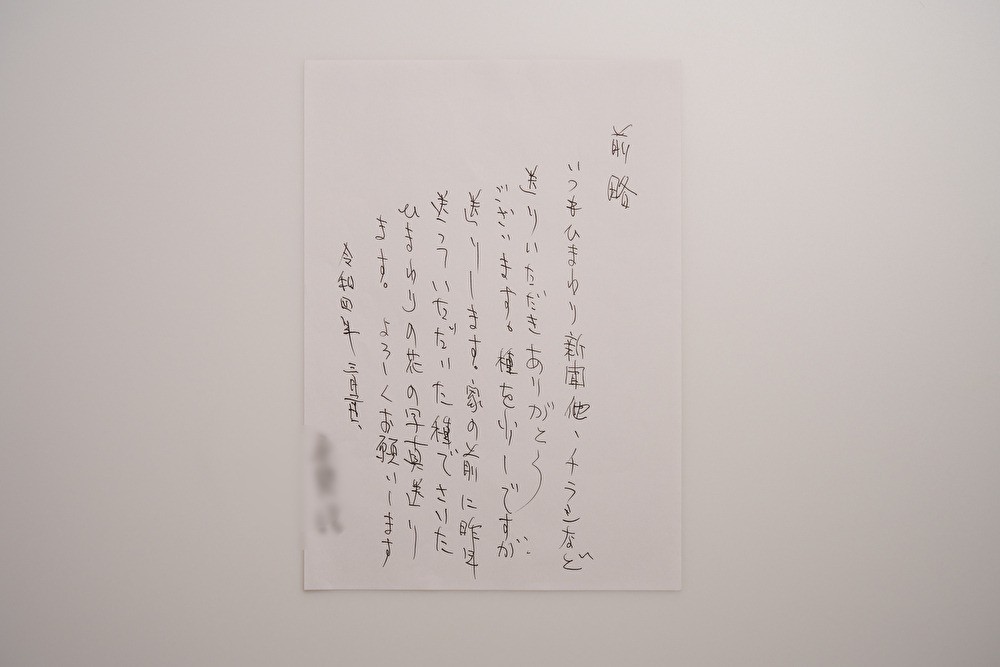 前略
いつもひまわり新聞他、チラシなど
送りいただきありがとう
ございます。種を少しですが
送りします。家の前に昨年
送っていただいた種でさいた
ひまわりの花の写真送り
ます。よろしくお願いします
令和四年三月